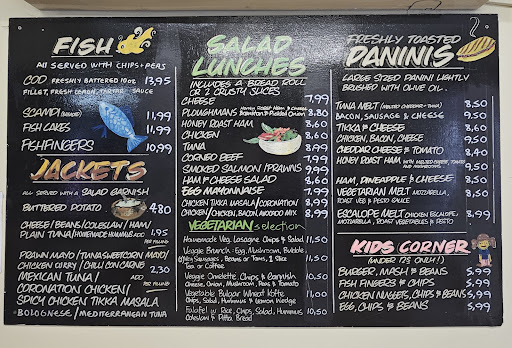 FISH
ALL SERVED WITH CHIPS + PEAS
COD FRESHLY BATTERED 10oz 13,95
FILLET, FRESH LEMON, TARTAR SAUCE
SCAMPI 11,99
FISH CAKES 11,99
FISHFINGERS 10,99
JACKETS
ALL SERVED WITH A SALAD GARNISH
BUTTERED POTATO 4.80
CHEESE/BEANS/COLESLAW/HAM/
PLAIN TUNA/HOMEMADE HUMMUS 1.95
PER FILLING
PRAWN MAYO/TUNA SWEETCORN MAYO/
CHICKEN CURRY/CHILLI CON CARNE 2.30
MEXICAN TUNA/ PER FILLING
CORONATION CHICKEN/
SPICY CHICKEN TIKKA MASALA
BOLOGNESE/MEDITERRANEAN TUNA
SALAD
LUNCHES
INCLUDES A BREAD ROLL
OR 2 CRUSTY SLICES
CHEESE 7.99
PLOUGHMANS Honey Roast Ham & Cheese 8.80
& Pickled Onion
HONEY ROAST HAM 8.60
CHICKEN 8.60
TUNA 8.99
CORNED BEEF 7.99
SMOKED SALMON/PRAWNS 9.99
HAM & CHEESE SALAD 9.60
EGG MAYONNAISE 7.99
CHICKEN TIKKA MASALA/CORONATION 8,99
CHICKEN/CHICKEN, BACON, AVOCADO MIX 8,99
VEGETARIAN selection
Homemade Veg Lasagne Chips & Salad 11,50
Veggie Brunch - Egg, Mushroom, Bubble,
Veg Sausages, Beans or Toms, 2 Slice 11,50
Tea or Coffee
Veggie Omelette Chips & Garnish 10,50
Cheese, Onion, Mushroom, Peas & Tomato
Vegetable Bulgar Wheat Kofte 11,00
Chips, Salad, Hummus & Lemon Wedge
Falafel w/ Rice, Chips, Salad, Hummus 10,50
Coleslaw & Pitta Bread
FRESHLY TOASTED
PANINIS
LARGE SIZED PANINI LIGHTLY
BRUSHED WITH OLIVE OIL.
TUNA MELT (MELTED CHEESE+TUNA) 8,50
BACON, SAUSAGE & CHEESE 9,50
TIKKA & CHEESE 8,60
CHICKEN, BACON, CHEESE 9,50
CHEDDAR CHEESE & TOMATO 8,40
HONEY ROAST HAM WITH MELTED CHEESE, TOMATO 9,50
AND MUSHROOMS
HAM, PINEAPPLE & CHEESE 8.50
VEGETARIAN MELT MOZZARELLA, 8.50
ROAST VEG & PESTO SAUCE
ESCALOPE MELT CHICKEN ESCALOPE, 8,99
MOZZARELLA, ROAST VEGETABLES & PESTO
KIDS CORNER
(UNDER 12S ONLY!)
BURGER, MASH & BEANS 5,99
FISH FINGERS & CHIPS 5,99
CHICKEN NUGGETS, CHIPS & BEANS 5,99
EGG, CHIPS & BEANS 5,99